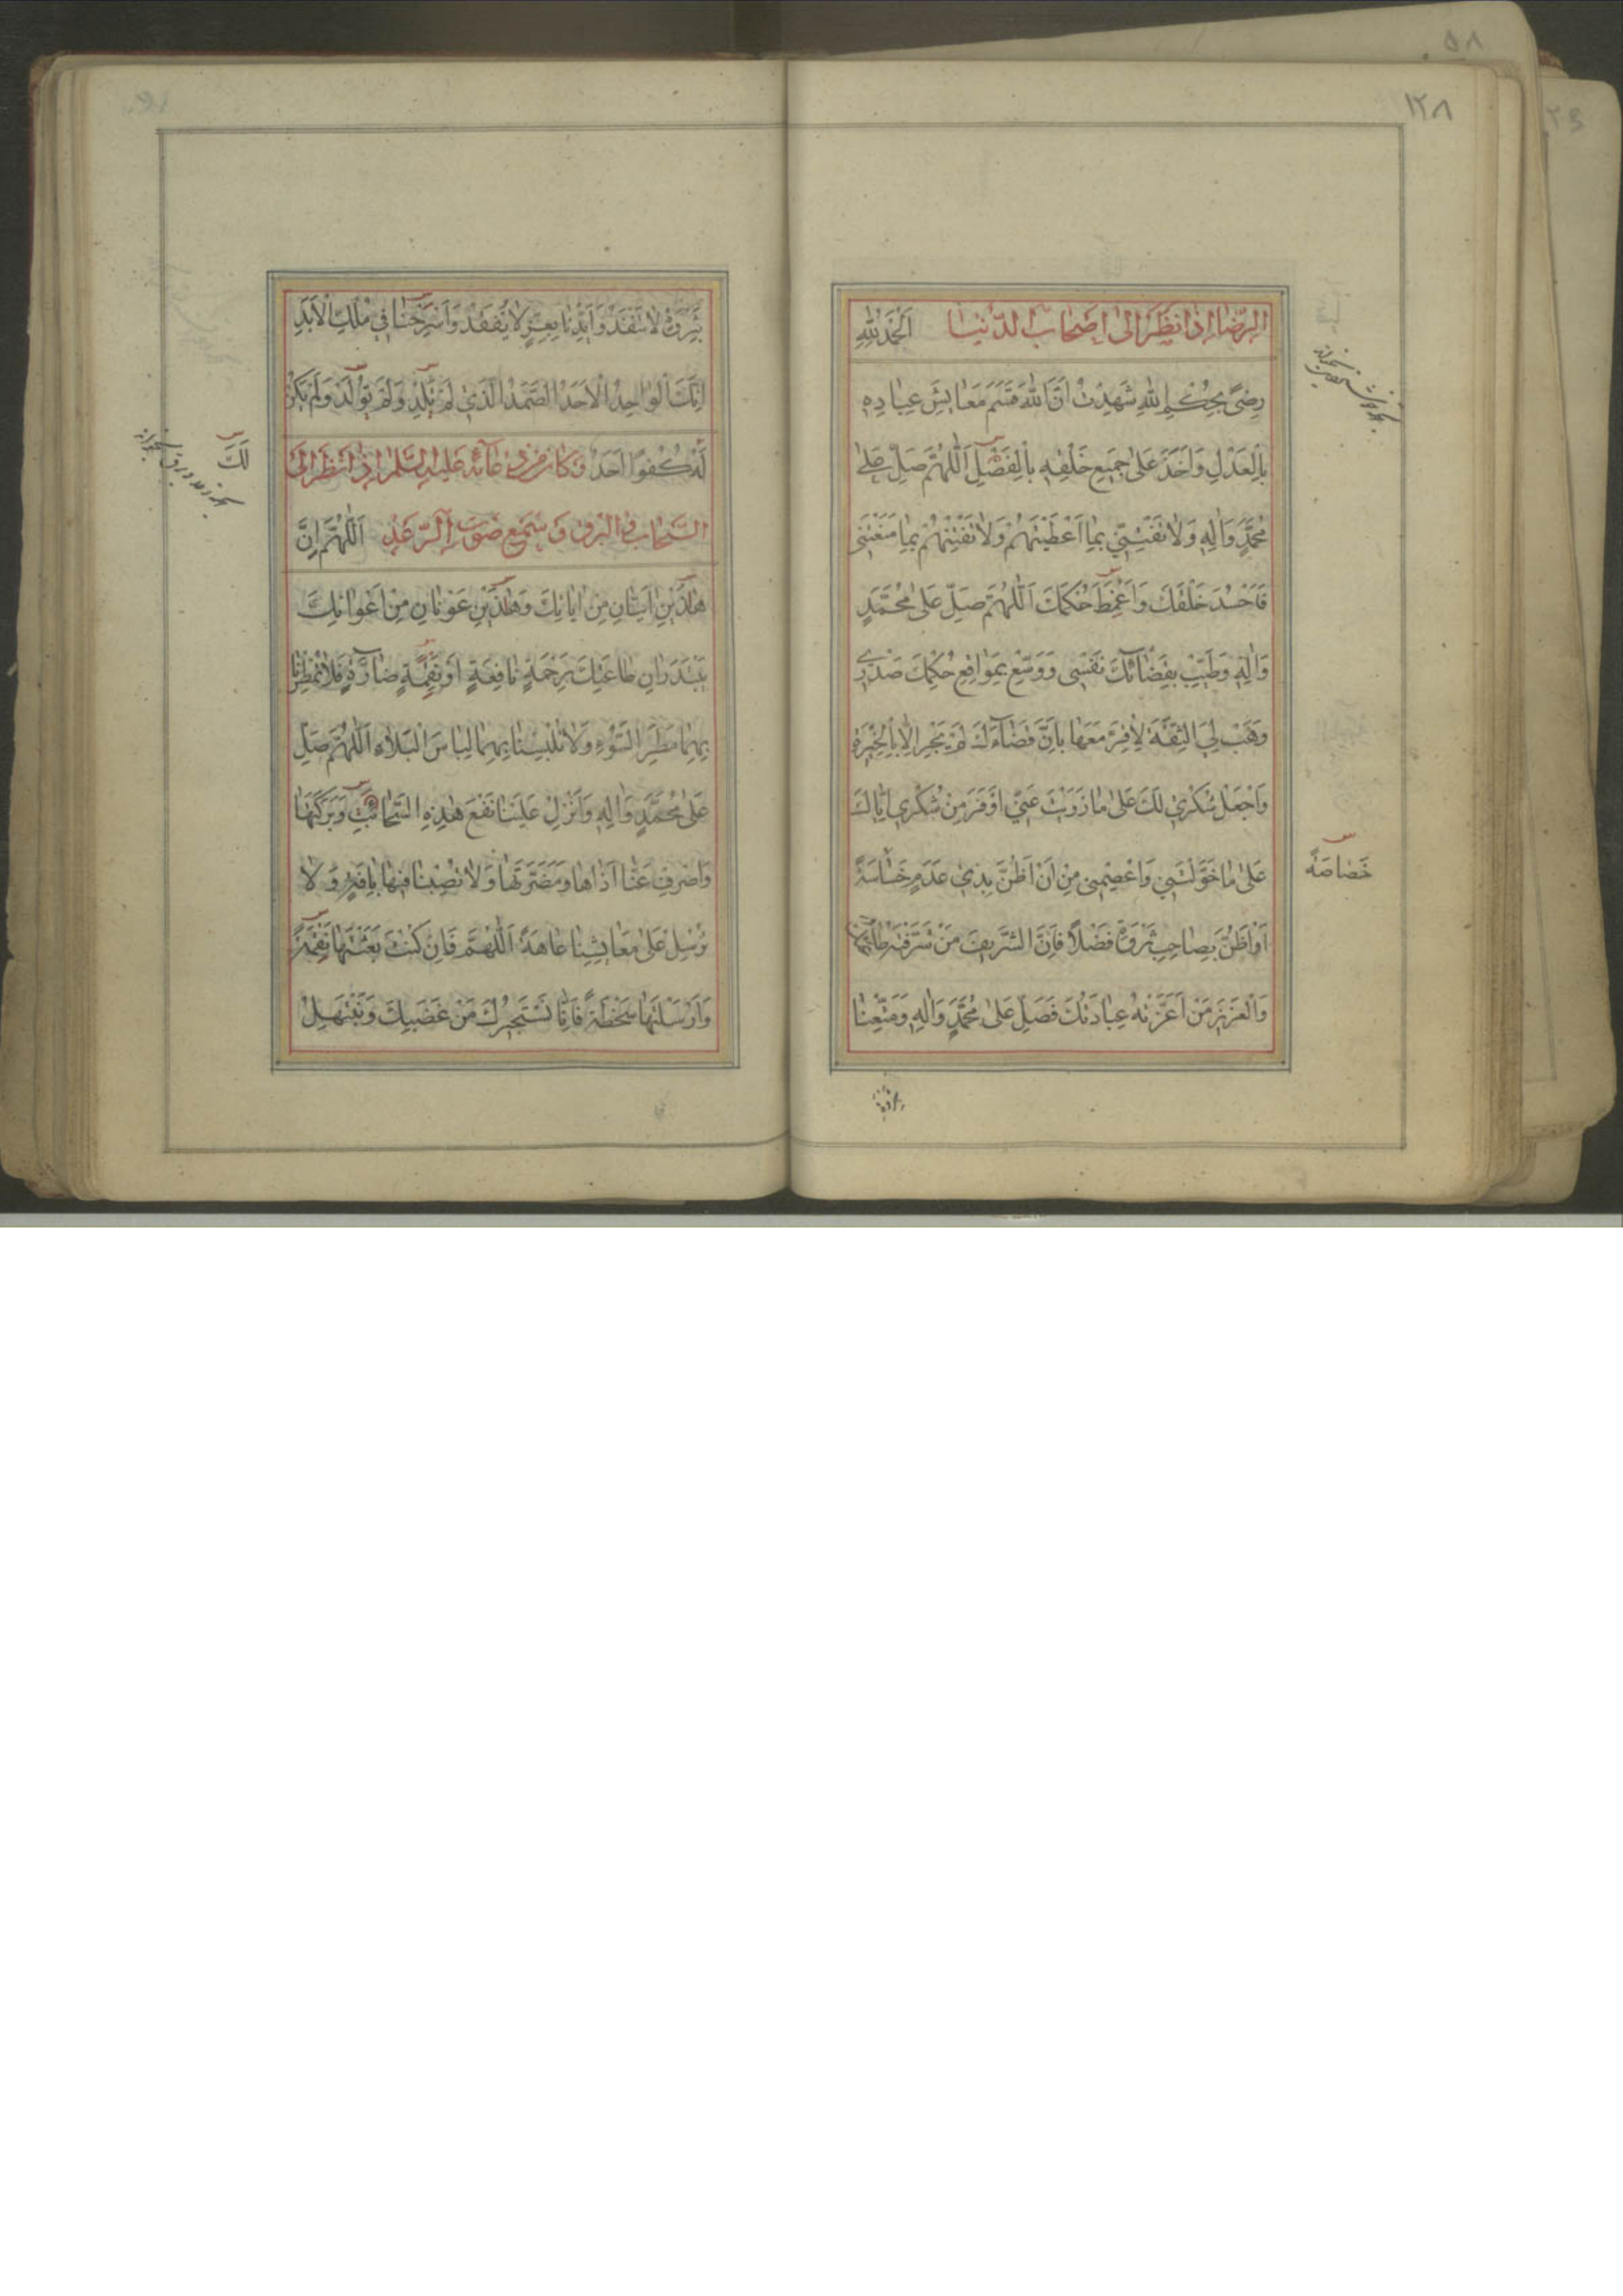 ١٢٨
الرِّضَا إِذَا نَظَرَ إِلَى أَصْحَابِ الدُّنْيَا اَلْحَمْدُ لِلّٰهِ
رِضًى بِحُكْمِ اللّٰهِ شَهِدْتُ اَنَّ اللّٰهَ قَسَمَ مَعَايِشَ عِبَادِهِ
بِالْعَدْلِ وَاَخَذَ عَلٰى جَمِيعِ خَلْقِهِ بِالْفَضْلِ اَللّٰهُمَّ صَلِّ عَلٰى
مُحَمَّدٍ وَاٰلِهِ وَلَا تَفْتِنِّي بِمَا اَعْطَيْتَهُمْ وَلَا تَفْتِنْهُمْ بِمَا مَنَعْتَنِي
فَاَحْسُدَ خَلْقَكَ وَاَغْمِطَ حُكْمَكَ اَللّٰهُمَّ صَلِّ عَلٰى مُحَمَّدٍ
وَاٰلِهِ وَطَيِّبْ بِقَضَائِكَ نَفْسِي وَوَسِّعْ بِمَوَاقِعِ حُكْمِكَ صَدْرِي
وَهَبْ لِيَ الثِّقَةَ لِاُقِرَّ مَعَهَا بِاَنَّ قَضَاءَكَ لَمْ يَجْرِ اِلَّا بِالْخِيَرَةِ
وَاجْعَلْ شُكْرِي لَكَ عَلٰى مَا زَوَيْتَ عَنِّي اَوْفَرَ مِنْ شُكْرِي اِيَّاكَ
عَلٰى مَا خَوَّلْتَنِي وَاعْصِمْنِي مِنْ اَنْ اَظُنَّ بِذِي عَدَمٍ خَسَاسَةً
خَصَاصَةً
اَوْ اَظُنَّ بِصَاحِبِ ثَرْوَةٍ فَضْلًا فَاِنَّ الشَّرِيفَ مَنْ شَرَّفَتْهُ طَاعَتُكَ
وَالْعَزِيزَ مَنْ اَعَزَّتْهُ عِبَادَتُكَ فَصَلِّ عَلٰى مُحَمَّدٍ وَاٰلِهِ وَمَتِّعْنَا
بِثَرْوَةٍ لَا تَنْفَدُ وَاَيِّدْنَا بِعِزٍّ لَا يُفْقَدُ وَاسْرَحْنَا فِي مُلْكِ الْاَبَدِ
اِنَّكَ الْوَاحِدُ الْاَحَدُ الصَّمَدُ الَّذِي لَمْ يَلِدْ وَلَمْ يُولَدْ وَلَمْ يَكُنْ
لَهُ كُفُوًا اَحَدٌ وَكَانَ مِنْ دُعَائِهِ عَلَيْهِ السَّلَمُ اِذَا نَظَرَ اِلَى
لَكَ
السَّحَابِ وَالْبَرْقِ وَسَمِعَ صَوْتَ الرَّعْدِ اَللّٰهُمَّ اِنَّ
هٰذَيْنِ اٰيَتَانِ مِنْ اٰيَاتِكَ وَهٰذَيْنِ عَوْنَانِ مِنْ اَعْوَانِكَ
يَبْتَدِرَانِ طَاعَتَكَ بِرَحْمَةٍ نَافِعَةٍ اَوْ نَقِمَةٍ ضَارَّةٍ فَلَا تُمْطِرْنَا
بِهِمَا مَطَرَ السَّوْءِ وَلَا تُلْبِسْنَا بِهِمَا لِبَاسَ الْبَلَاءِ اَللّٰهُمَّ صَلِّ
عَلٰى مُحَمَّدٍ وَاٰلِهِ وَاَنْزِلْ عَلَيْنَا نَفْعَ هٰذِهِ السَّحَائِبِ وَبَرَكَتَهَا
وَاصْرِفْ عَنَّا اَذَاهَا وَمَضَرَّتَهَا وَلَا تُصِبْنَا فِيهَا بِاٰفَةٍ وَلَا
تُرْسِلْ عَلٰى مَعَايِشِنَا عَاهَةً اَللّٰهُمَّ فَاِنْ كُنْتَ بَعَثْتَهَا نِقْمَةً
وَاَرْسَلْتَهَا سَخْطَةً فَاِنَّا نَسْتَجِيرُكَ مِنْ غَضَبِكَ وَنَبْتَهِلُ